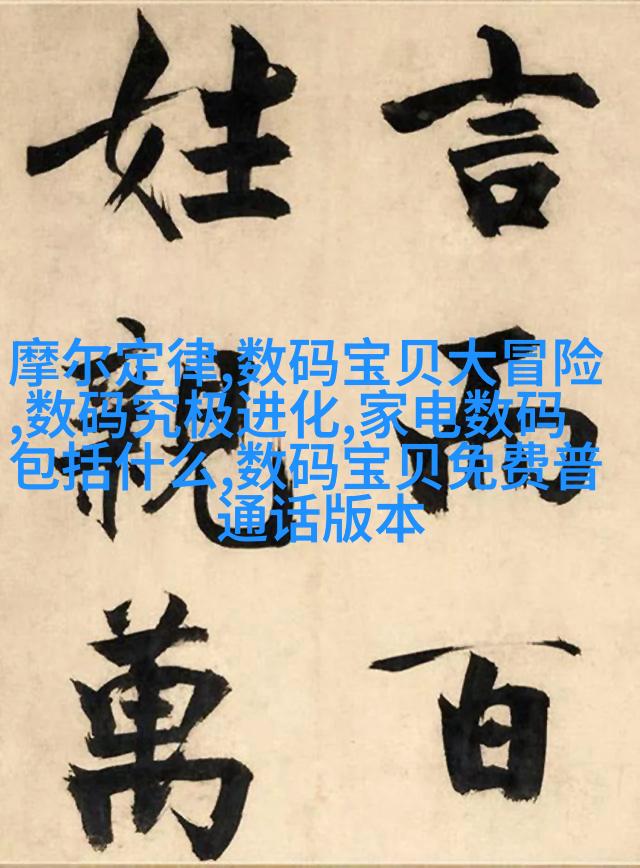 言而百
姓親萬
摩尔定律,数码宝贝大冒险
,数码究极进化,家电数码
包括什么,数码宝贝免费普
通话版本